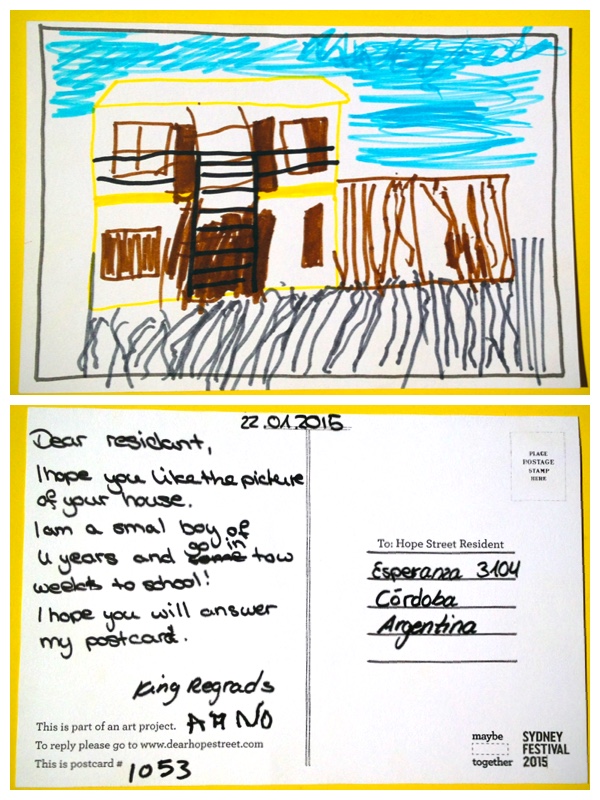 22.01.2015
Dear residant,
I hope you like the picture
of your house.
I am a smal boy of
4 years and go in tow
weeks to school!
I hope you will answer
my postcard.
King Regrads
ANNO
This is part of an art project.
To reply please go to www.dearhopestreet.com
This is postcard # 1053
PLACE
POSTAGE
STAMP
HERE
To: Hope Street Resident
Esperanza 3104
Córdoba
Argentina
maybe
together
SYDNEY
FESTIVAL
2015